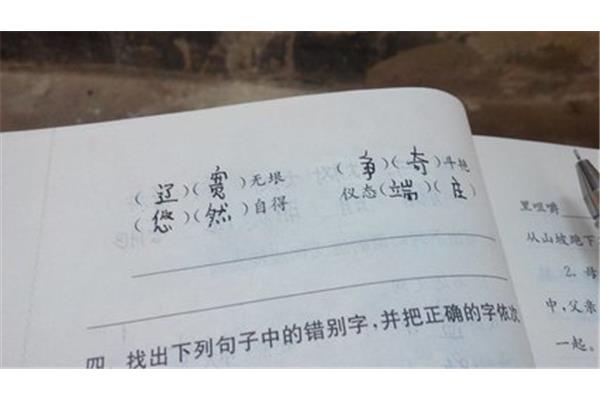 (辽)(宽)无垠 (争)(奇)斗艳
(悠)(然)自得 仪态(端)(庄)
四、找出下列句子中的错别字,并把正确的字依次
里咀嚼
从山坡跑下
2. 母
中,父亲
一起。